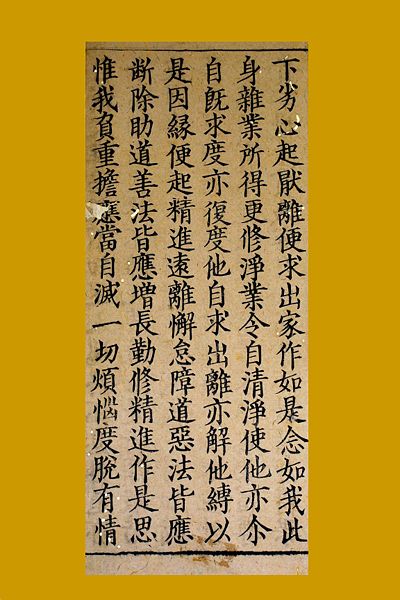 下劣心起猒離便求出家作如是念如我此
身雜業所得更修淨業令自清淨使他亦尒
自旣求度亦復度他自求出離亦解他縛以
是因縁便起精進遠離懈怠障道惡法皆應
断除助道善法皆應増長勤修精進作是思
惟我負重擔應當自滅一切煩惱度脫有情